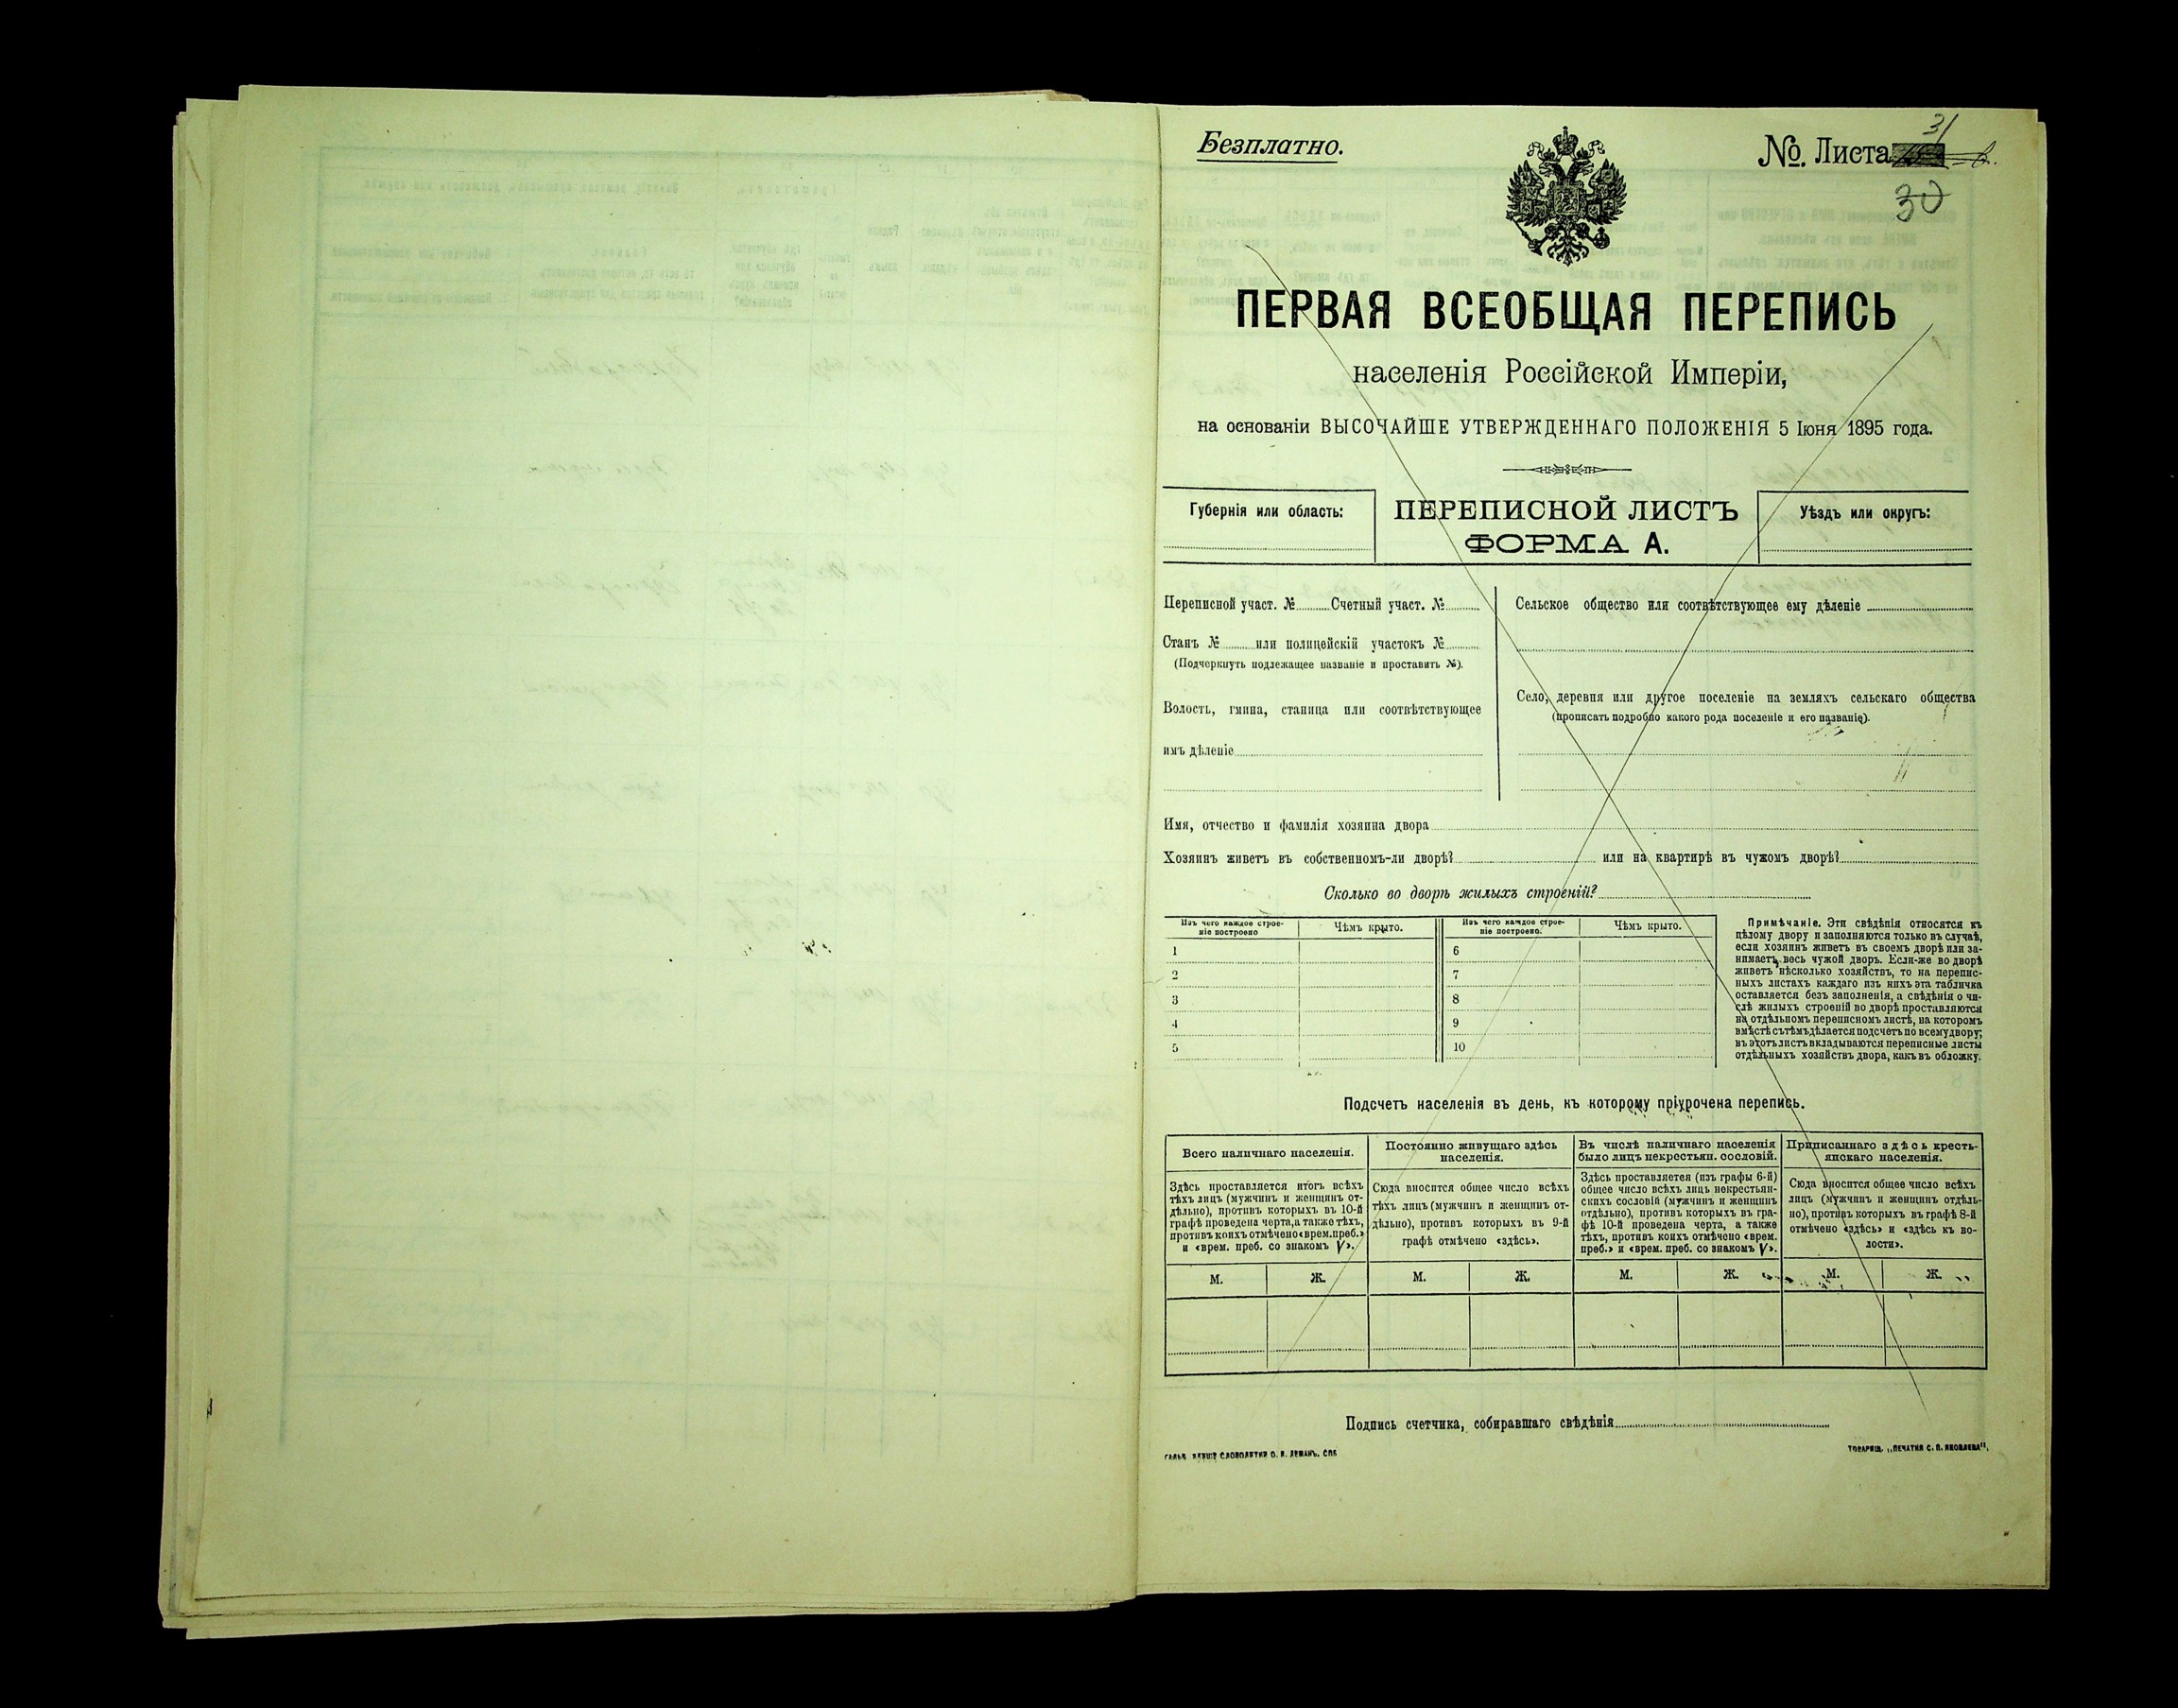 Безплатно.
№. Листа
31
30
ПЕРВАЯ ВСЕОБЩАЯ ПЕРЕПИСЬ
населенія Россійской Имперіи,
на основаніи ВЫСОЧАЙШЕ УТВЕРЖДЕННАГО ПОЛОЖЕНІЯ 5 Іюня 1895 года.
Губернія или область:
ПЕРЕПИСНОЙ ЛИСТЪ
ФОРМА А.
Уѣздъ или округъ:
Переписной участ. № Счетный участ. №
Станъ № или полицейскій участокъ №
(Подчеркнуть подлежащее названіе и проставить №).
Волость, гмина, станица или соотвѣтствующее
имъ дѣленіе
Сельское общество или соотвѣтствующее ему дѣленіе
Село, деревня или другое поселеніе на земляхъ сельскаго общества
(прописать подробно какого рода поселеніе и его названіе).
Имя, отчество и фамилія хозяина двора
Хозяинъ живетъ въ собственномъ-ли дворѣ? или на квартирѣ въ чужомъ дворѣ?
Сколько во дворѣ жилыхъ строеній?
Изъ чего каждое строе-
ніе построено
Чѣмъ крыто.
Изъ чего каждое строе-
ніе построено.
Чѣмъ крыто.
1
2
3
4
5
6
7
8
9
10
Примѣчаніе. Эти свѣдѣнія относятся къ
цѣлому двору и заполняются только въ случаѣ,
если хозяинъ живетъ въ своемъ дворѣ или за-
нимаетъ весь чужой дворъ. Если-же во дворѣ
живетъ нѣсколько хозяйствъ, то на перепис-
ныхъ листахъ каждаго изъ нихъ эта табличка
оставляется безъ заполненія, а свѣдѣнія о чи-
слѣ жилыхъ строеній во дворѣ проставляются
на отдѣльномъ переписномъ листѣ, на которомъ
вмѣстѣ съ тѣмъ дѣлается подсчетъ по всему двору;
въ этотъ листъ вкладываются переписные листы
отдѣльныхъ хозяйствъ двора, какъ въ обложку.
Подсчетъ населенія въ день, къ которому пріурочена перепись.
Всего наличнаго населенія.
Здѣсь проставляется итогъ всѣхъ
тѣхъ лицъ (мужчинъ и женщинъ от-
дѣльно), противъ которыхъ въ 10-й
графѣ проведена черта, а также тѣхъ,
противъ коихъ отмѣчено «врем. преб.»
и «врем. преб. со знакомъ V».
Постоянно живущаго здѣсь
населенія.
Сюда вносится общее число всѣхъ
тѣхъ лицъ (мужчинъ и женщинъ от-
дѣльно), противъ которыхъ въ 9-й
графѣ отмѣчено «здѣсь».
Въ числѣ наличнаго населенія
было лицъ некрестьян. сословій.
Здѣсь проставляется (изъ графы 6-й)
общее число всѣхъ лицъ некрестьян-
скихъ сословій (мужчинъ и женщинъ
отдѣльно), противъ которыхъ въ гра-
фѣ 10-й проведена черта, а также
тѣхъ, противъ коихъ отмѣчено «врем.
преб.» и «врем. преб. со знакомъ V».
Приписаннаго здѣсь кресть-
янскаго населенія.
Сюда вносится общее число всѣхъ
лицъ (мужчинъ и женщинъ отдѣль-
но), противъ которыхъ въ графѣ 8-й
отмѣчено «здѣсь» и «здѣсь къ во-
лости».
М. Ж. М. Ж. М. Ж. М. Ж.
Подпись счетчика, собиравшаго свѣдѣнія
СЛОВОЛИТНИ О. И. ЛЕМАНЪ. СПБ
ТОВАРИЩ. „ПЕЧАТНЯ С. П. ЯКОВЛЕВА“.